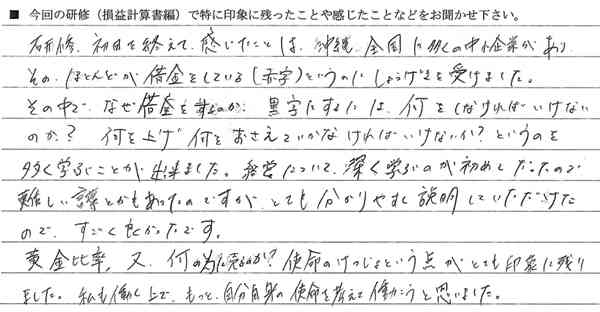 ■ 今回の研修（損益計算書編）で特に印象に残ったことや感じたことなどをお聞かせ下さい。
研修、初日を終えて、感じたことは、沖縄、全国に多くの中小企業があり、
その、ほとんどが借金をしている（赤字）というのにしょうげきを受けました。
その中で、なぜ借金をするのか、黒字にするには、何をしなければいけない
のか？ 何を上げ何をおさえていかなければいけないか？というのを
多く学ぶことが出来ました。経営について、深く学ぶのが初めてだったので
難しい言葉とかもあったのですが、とても分かりやすく説明していただけた
ので、すごく良かったです。
黄金比率、又、何の為に売るのか？使命のけつじょという点がとても印象に残り
ました。私も働く上で、もっと、自分自身の使命を考えて働こうと思いました。